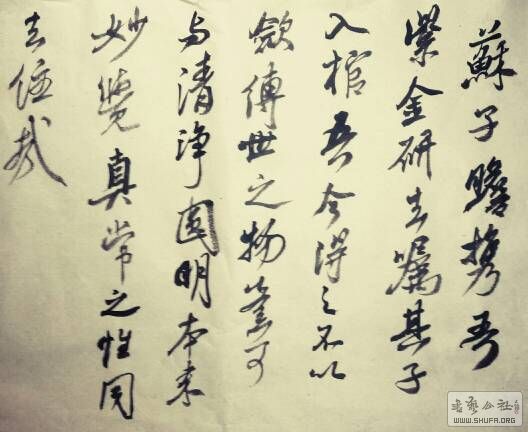 蘇子瞻携吾
紫金研去嘱其子
入棺吾今得之不以
斂傳世之物豈可
与清净圓明本来
妙覺真常之性同
去住哉
书艺公社
WWW.SHUFA.ORG